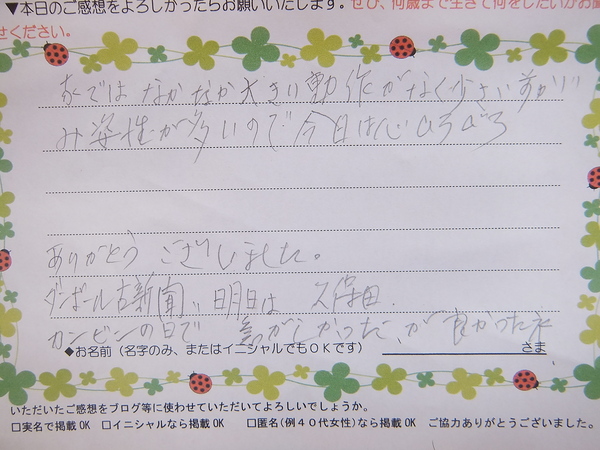 ▼本日のご感想をよろしかったらお願いいたします。ぜひ、何歳まで生きて何をしたいかお聞
せください。
家ではなかなか大きい動作がなく少さい前かが
み姿性が多いので今日は心ひろびろ
ありがとうございました。
ダンボール古新聞、明日は 久保田
カンビンの日で
が良かったネ
◆お名前（名字のみ、またはイニシャルでもＯＫです） さま
いただいたご感想をブログ等に使わせていただいてよろしいでしょうか。
□実名で掲載OK □イニシャルなら掲載OK □匿名(例４０代女性)なら掲載OK ご協力ありがとうございました。